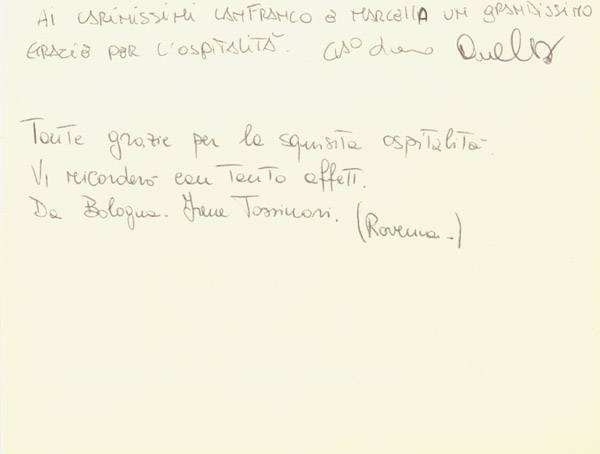 AI CARIMISSIMI LANFRANCO E MARCELLA UN GRANDISSIMO
GRAZIE PER L'OSPITALITÀ.
Tante grazie per la squisita ospitalità.
Vi ricorderò con tanto affett.
Da Bologna. Irene Tassinari.
(Ravenna-)